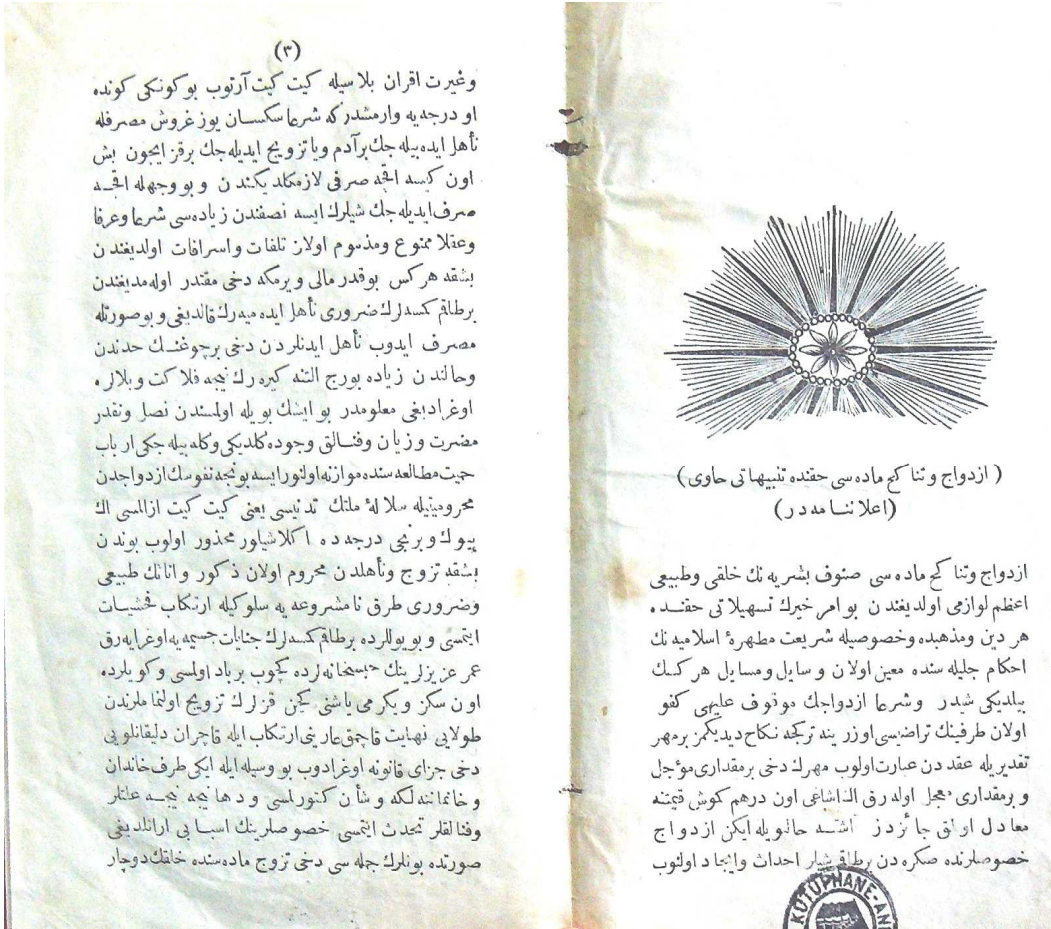 ( ازدواج وتناكح ماده سی حقنده تنبیهاتی حاوی )
(اعلاننامه در)
ازدواج وتناكح ماده سی صنوف بشریه نك خلقی وطبیعی
اعظم لوازمی اولدیغندن بو امر خیرك تسهیلاتی حقنده
هر دین ومذهبده وخصوصیله شریعت مطهرۀ اسلامیه نك
احكام جلیله سنده معین اولان وسایل ومسایل هر كسك
بیلدیكی شیدر وشرعا ازدواجك موقوف علیهی كفو
اولان طرفینك تراضیسی اوزرینه تركجه نكاح دیدیكمز بر مهر
تقدیریله عقددن عبارت اولوب مهرك دخی بر مقداری مؤجل
و بر مقداری معجل اوله رق الك اشاغی اون درهم كموش قیمتنه
معادل اولمق جائزدر اشته حال بویله ایكن ازدواج
خصوصلرنده صكره دن برطاقم شیلر احداث وایجاد اولنوب
KÜTÜPHANE
(٣)
وغیرت اقران بلاسیله كیت كیت آرتوب بوكونكی كونده
او درجه یه وارمشدر كه شرعا سكسان یوز غروش مصرفله
تأهل ایده بیله جك بر آدم ویا تزویج ایدیله جك بر قز ایچون بش
اون كیسه اقچه صرفی لازمكلدیكندن و بو وجهله اقچه
صرف ایدیله جك شیلرك ایسه نصفندن زیاده سی شرعا وعرفا
وعقلا ممنوع ومذموم اولان تلفات واسرافات اولدیغندن
بشقه هركس بو قدر مالی ویرمكه دخی مقتدر اوله مدیغندن
برطاقم كمسه لرك ضروری تأهل ایده میه رك قالدیغی و بو صورتله
مصرف ایدوب تأهل ایدنلردن دخی بر چوغنك حدندن
وحالندن زیاده بورج التنه كیره رك نیجه فلاكت و بلالره
اوغرادیغی معلومدر بو ایشك بویله اولمسندن نصل ونقدر
مضرت وزیان وفنالق وجوده كلدیكی وكله بیله جكی ارباب
حمیت مطالعه سنده موازنه اولنور ایسه بونجه نفوسك ازدواجدن
محرومیتیله سلالۀ ملتك تدنیسی یعنی كیت كیت ازالمسی اك
بیوك و برنجی درجه ده اكلاشیلور محذور اولوب بوندن
بشقه تزوج وتأهلدن محروم اولان ذكور واناثك طبیعی
وضروری طرق نامشروعه یه سلوكیله ارتكاب فحشیات
ایتمسی و بو یوللرده برطاقم كمسه لرك جنایات جسیمه یه اوغرایه رق
عمر عزیزلرینك حبسخانه لرده كچوب برباد اولمسی و كویلرده
اون سكز ویكرمی یاشنی كچن قزلرك تزویج اولنمامه لرندن
طولایی نهایت قاچمق عارینی ارتكاب ایله قاچران دلیقانلویی
دخی جزای قانونه اوغرادوب بو وسیله ایله ایكی طرف خاندان
و خانماننه لكه وشأن كتورلمسی ودها نیجه نیجه علتلر
وفنالقلر تحدث ایتمسی خصوصلرینك اسبابی ارانلدیغی
صورتده بونلرك جمله سی دخی تزوج ماده سنده خلقك دوچار